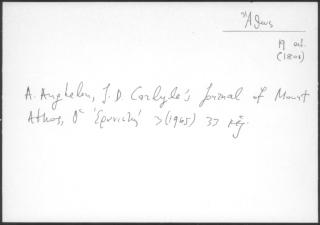 Ἄθως
19 αι.
(1801)
A. Anghelou, J. D. Carlyle's Journal of Mount
Athos, Ὁ Ἐρανιστής 3 (1965) 33 κἑξ.